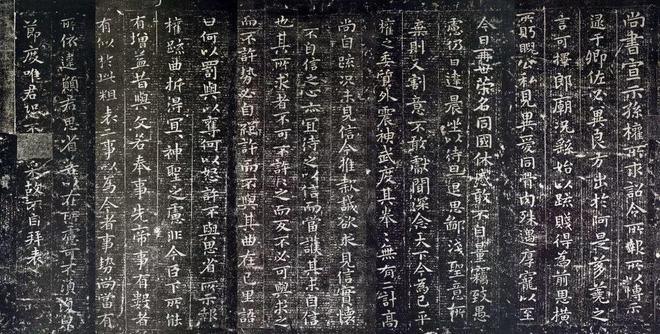 尚書宣示孫權所求詔令所報所以博示
逮于卿佐必冀良方出於阿是芻蕘之
言可擇郎廟況繇始以疏賤得為前恩橫
所盼睨公私見異愛同骨肉殊遇厚寵以至
今日再世榮名同國休慼敢不自量竊致愚
慮仍日達晨坐以待旦退思鄙淺聖意所
棄則又割意不敢獻聞深念天下今為已平
權之委質外震神武度其拳拳無有二計高
尚自疏況未見信今推款誠欲求見信實懷
不自信之心亦宜待之以信而當護其未自信
也其所求者不可不許許之而反不必可與求之
而不許勢必自絕許而不與其曲在己里語
曰何以罰與以奪何以怒許不與思省所示報
權疏曲折得宜神聖之慮非今臣下所能
有增益昔與文若奉事先帝事有數者
有似於此粗表二事以為今者事勢尚當有
所依違願君思省若以在所慮可不須復
節度唯君恐不采故不自拜表